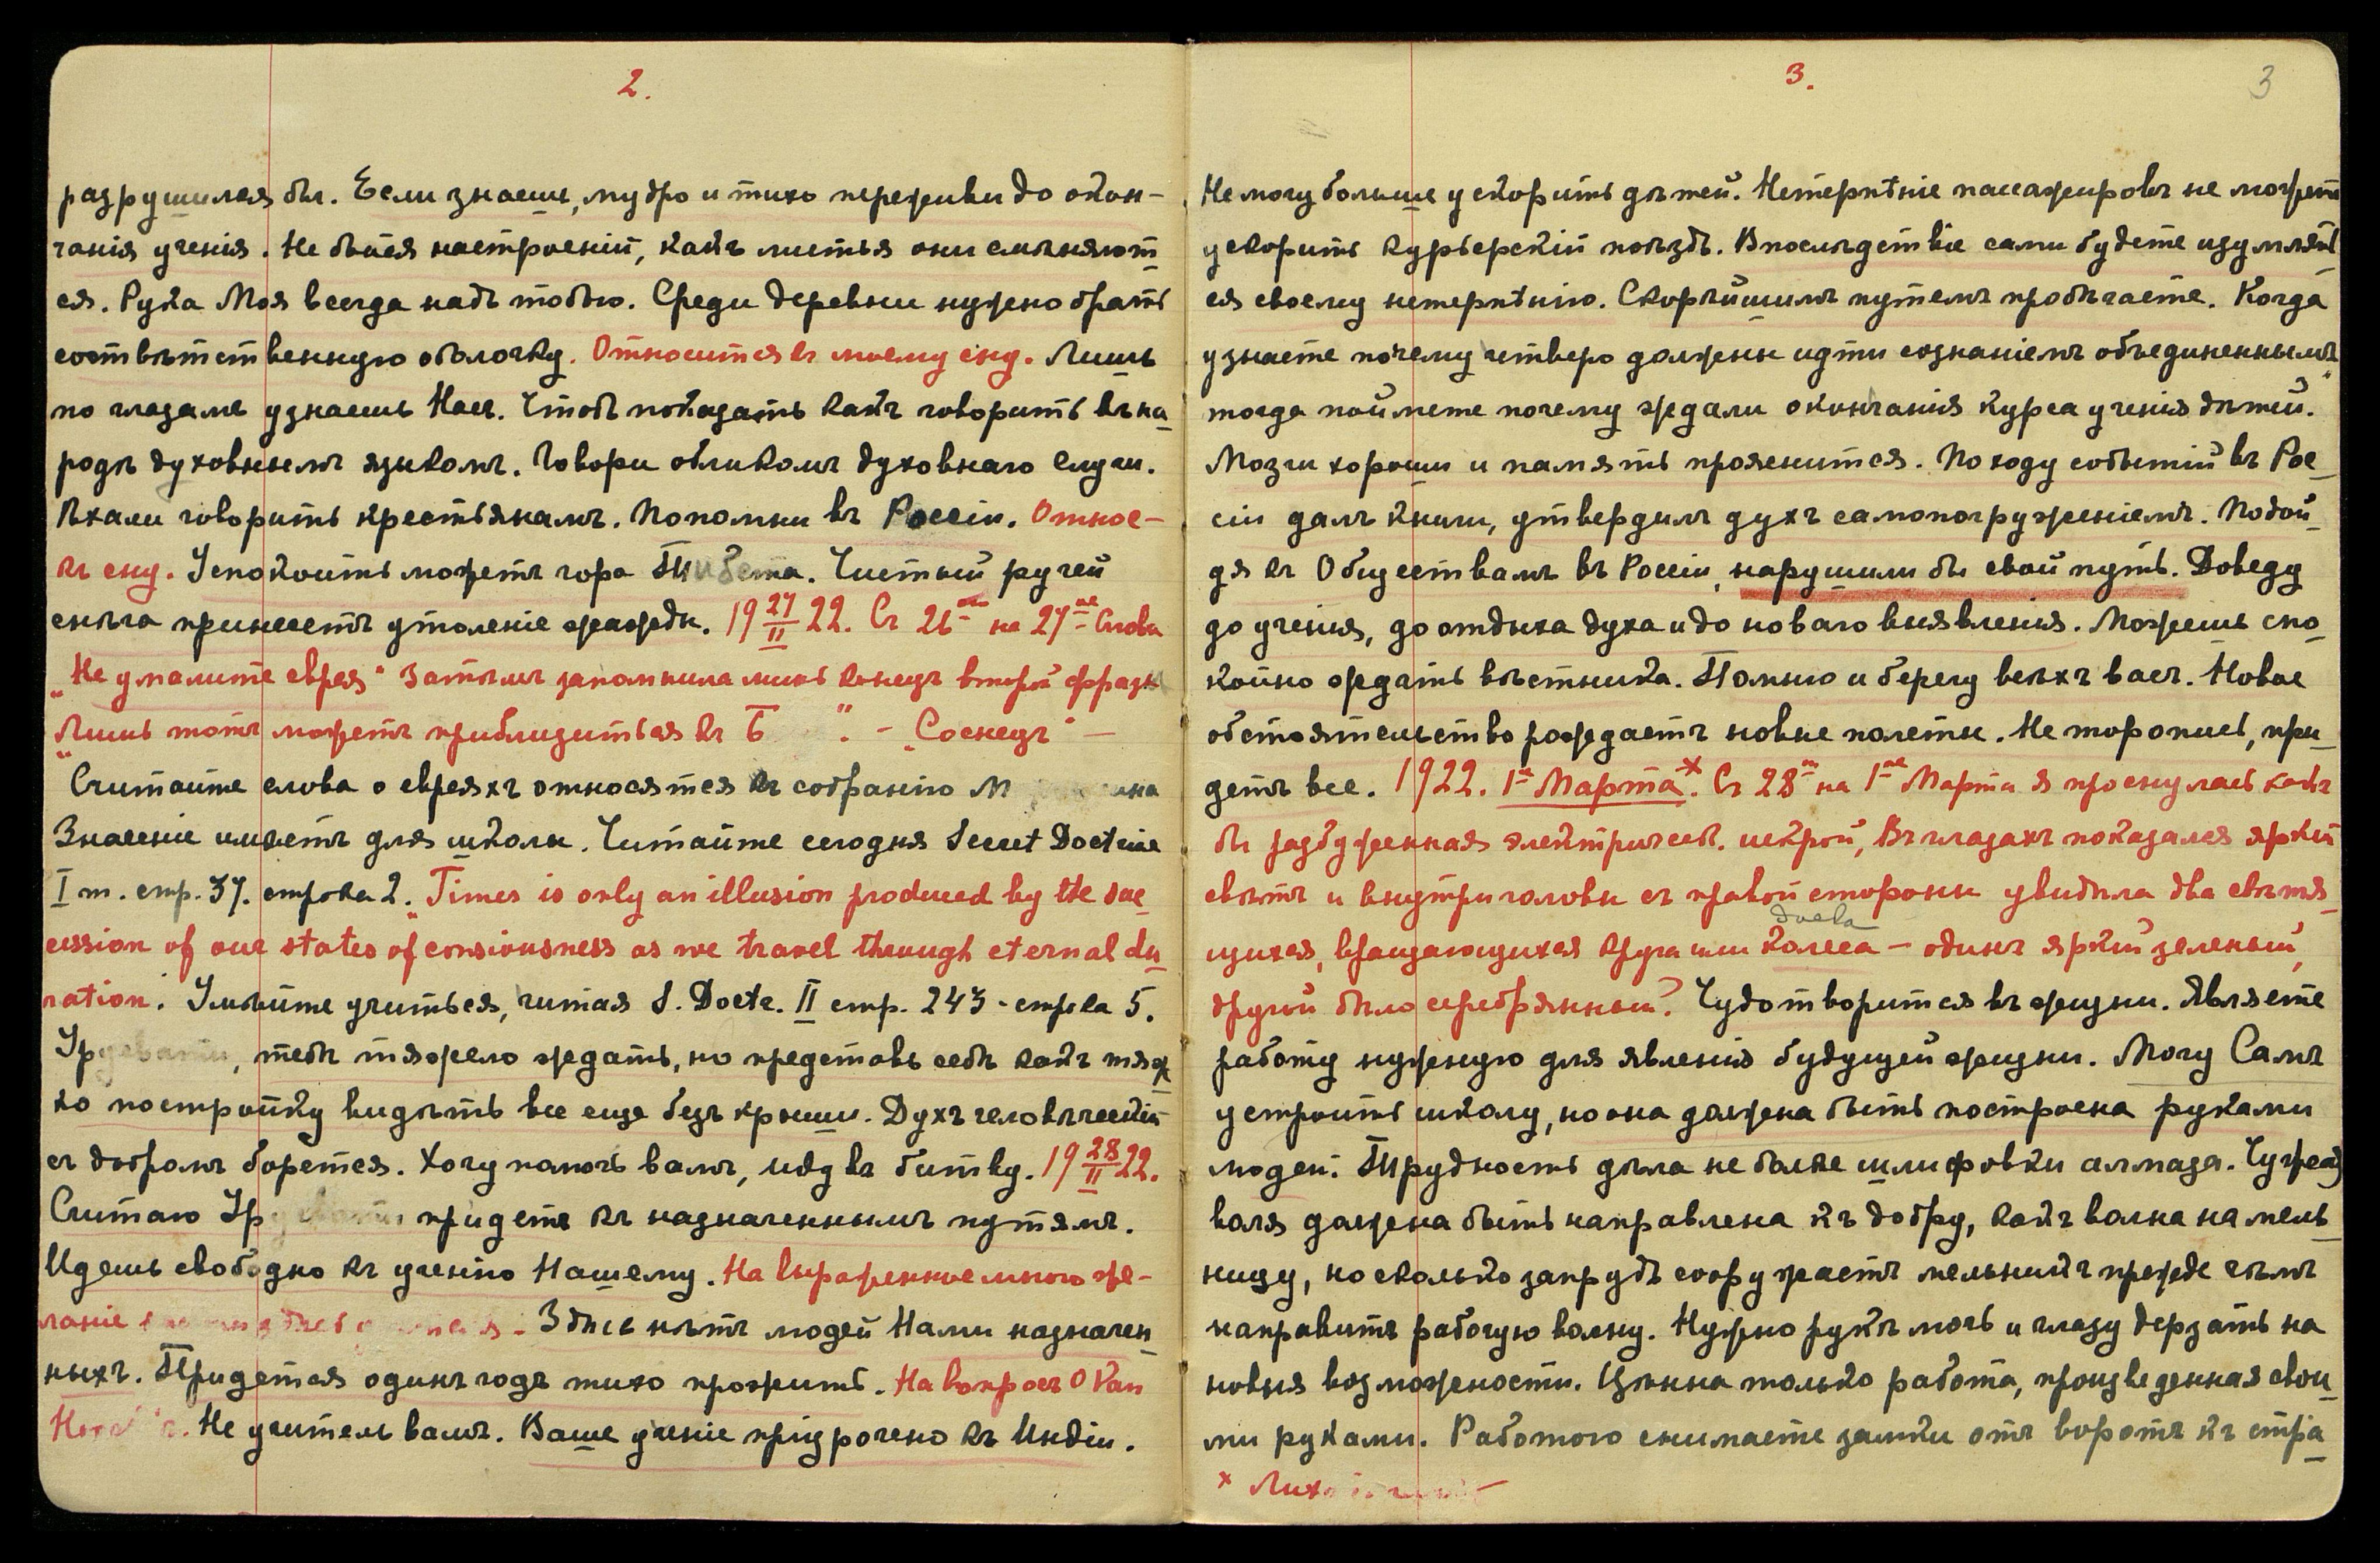 2.
разрушился бы. Если знаешь, мудро и тихо переживи до окон-
чанія ученія. Не бойся настроеній, какъ листья они смѣняют
ся. Рука Моя всегда надъ тобою. Среди деревни нужно брать
соотвѣтственную оболочку. Относится къ моему сну. Лишь
по глазамъ узнаешь Насъ. Чтобъ показать какъ говорить въ на
родѣ духовнымъ языкомъ. Говори обликомъ духовнаго слуги.
Ѣхали говорить крестьянамъ. Попомни въ Россіи. Относ-
къ сну. Успокоить можетъ гора Тибета. Чистый ручей
снѣга принесетъ утоленіе жажды. 19 27/II 22. Съ 26го на 27ое Слова
„Не умалите еврея" Затѣмъ запомнила лишь конецъ второй фразы
„Лишь тотъ можетъ приблизиться къ Б ". - „Соснецъ" -
Считайте слова о евреяхъ относятся къ собранію М
Значеніе имѣетъ для школы. Читайте сегодня Secret Doctrine
I т. стр. 37. строка 2. „Times is only an illusion produced by the suc
cession of our states of consiousness as we travel through eternal du
ration. Умѣйте учиться, читая S. Doctr. II стр. 243 - строка 5.
Ур , тебѣ тяжело ждать, но представь себѣ какъ тяж
ко постройку видѣть все еще безъ крыши. Духъ человѣческій
съ добромъ борется. Хочу помочь вамъ, иду въ битву. 19 28/II 22.
Считаю Ур придетъ къ назначеннымъ путямъ.
Идешь свободно къ ученію Нашему. На выраженное мною же-
ланіе Здѣсь нѣтъ людей Нами назначен
ныхъ. Придется одинъ годъ тихо прожить. На вопросъ о
Не учитель вамъ. Ваше ученіе пріурочено къ Индіи.
3.
3
Не могу больше ускорить дѣтей. Нетерпѣніе пассажировъ не можетъ
ускорить курьерскій поѣздъ. Впослѣдствіе сами будете изумлять
ся своему нетерпѣнію. Скорѣйшимъ путемъ пробѣгаете. Когда
узнаете почему четверо должны идти сознаніемъ объединеннымъ,
тогда поймете почему ждали окончанія курса ученія дѣтей.
Мозги хороши и память прояснится. По ходу событій въ Рос
сіи далъ книги, утвердилъ духъ самопогруженіемъ. Подой
дя къ Обществамъ въ Россіи, нарушили бы свой путь. Доведу
до ученія, до отдыха духа и до новаго выявленія. Можешь спо
койно ждать вѣстника. Помню и берегу всѣхъ васъ. Новое
обстоятельство рождаетъ новые полеты. Не торопись, при
детъ все. 1922. 1е Марта.x Съ 28го на 1ое Марта я проснулась какъ
бы разбуженная электрическ. искрой, Въ глазахъ показался яркій
свѣтъ и внутри головы съ правой стороны увидѣла два свѣтя
щихся, вращающихся круга или колеса - одинъ яркій зеленый,
другой бѣло серебрянный? Чудо творится въ жизни. Являете
работу нужную для явленія будущей жизни. Могу Самъ
устроить школу, но она должна быть построена руками
людей. Трудность дѣла не болѣе шлифовки алмаза. Чужая
воля должна быть направлена къ добру, какъ волна на мель
ницу, но сколько запрудъ сооружаетъ мельникъ прежде чѣмъ
направитъ рабочую волну. Нужно рукѣ мочь и глазу дерзать на
новыя возможности. Цѣнна только работа, произведенная свои
ми руками. Работою снимаете замки отъ воротъ къ стра
x